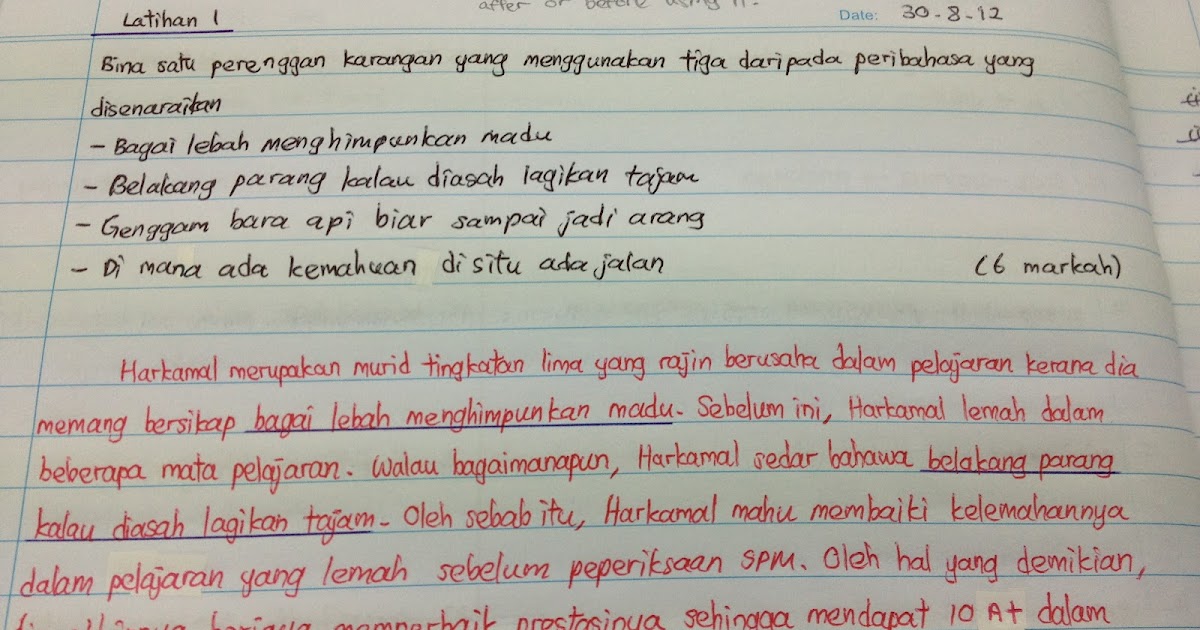 after or before using it.
Latihan 1
Date: 30-8-12
Bina satu perenggan karangan yang menggunakan tiga daripada peribahasa yang
disenaraikan
- Bagai lebah menghimpunkan madu
- Belakang parang kalau diasah lagikan tajam
- Genggam bara api biar sampai jadi arang
- Di mana ada kemahuan di situ ada jalan (6 markah)
Harkamal merupakan murid tingkatan lima yang rajin berusaha dalam pelajaran kerana dia
memang bersikap bagai lebah menghimpunkan madu. Sebelum ini, Harkamal lemah dalam
beberapa mata pelajaran. Walau bagaimanapun, Harkamal sedar bahawa belakang parang
kalau diasah lagikan tajam. Oleh sebab itu, Harkamal mahu membaiki kelemahannya
dalam pelajaran yang lemah sebelum peperiksaan SPM. Oleh hal yang demikian,
prestasinya sehingga mendapat 10 A+ dalam